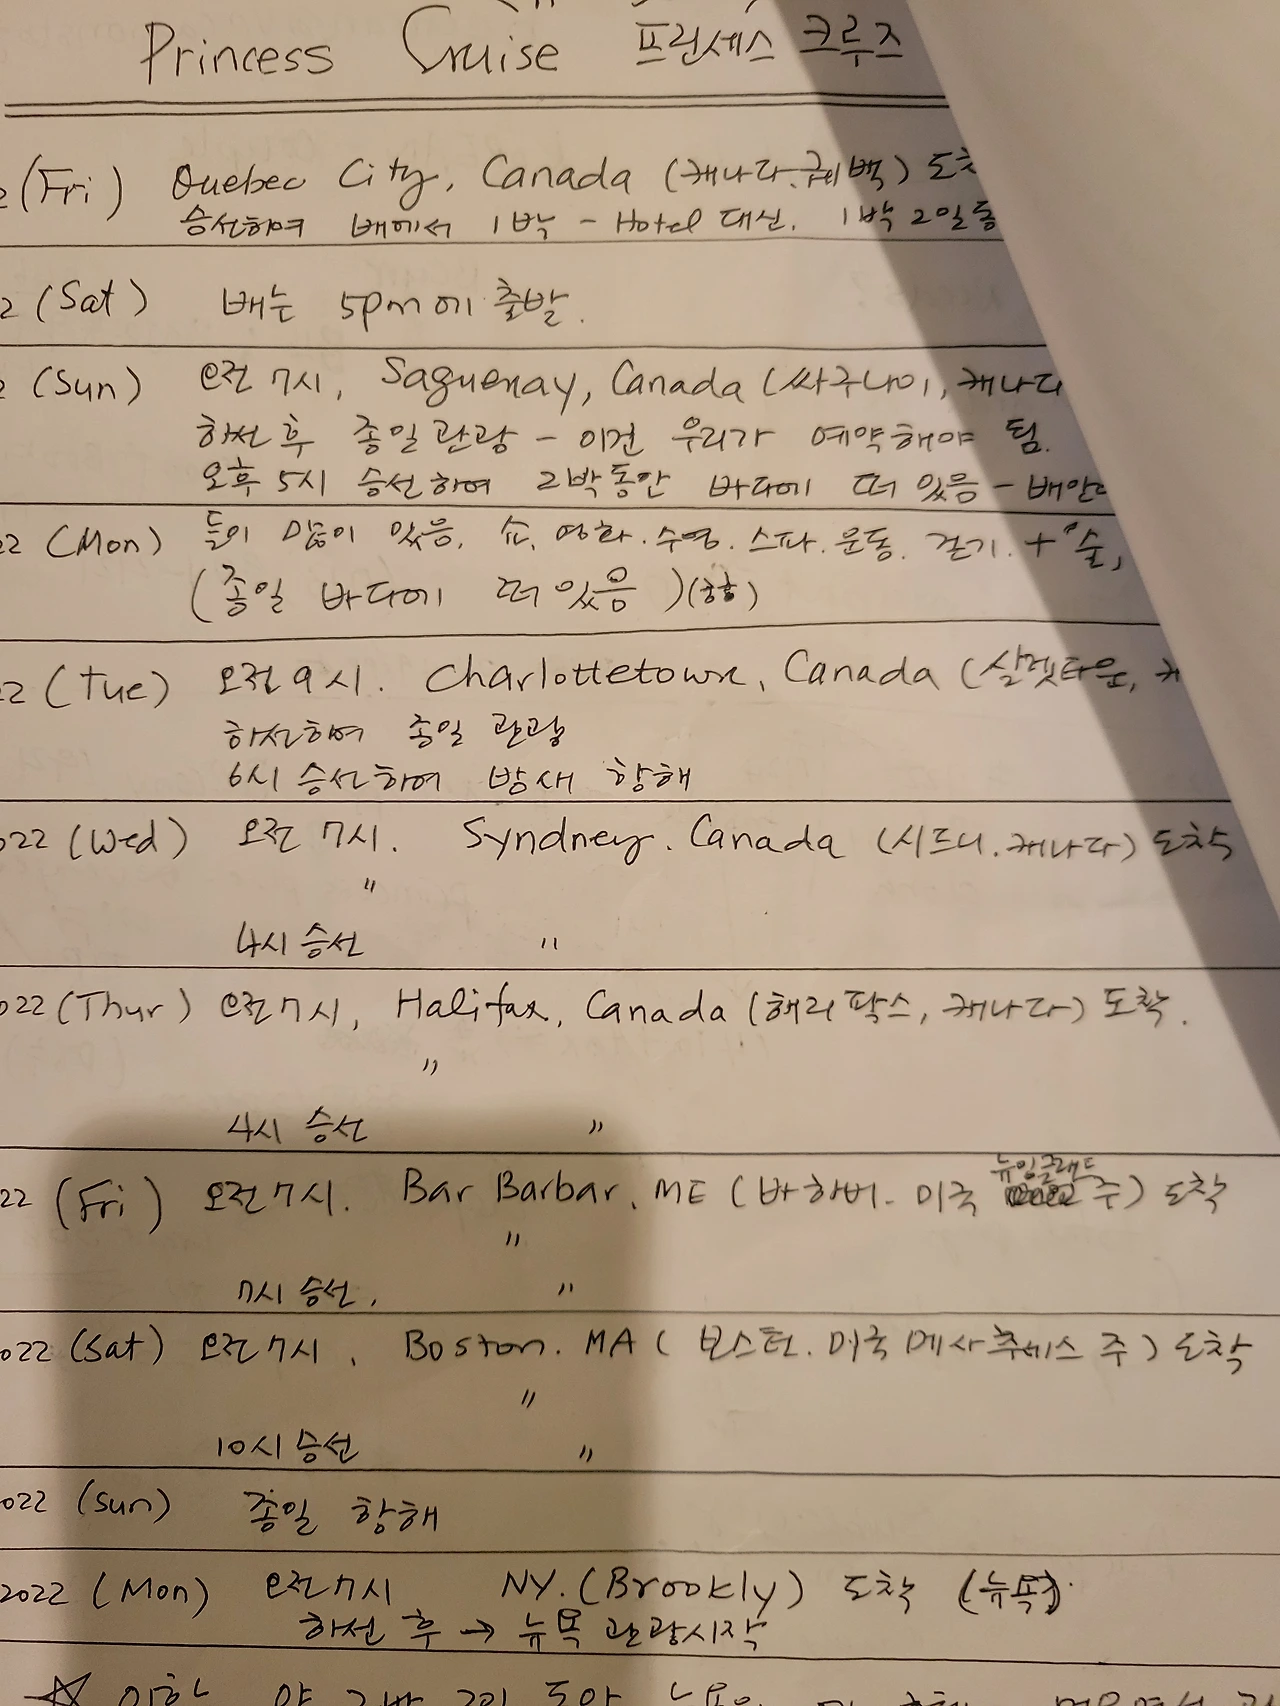 Princess Cruise 프린세스 크루즈
2 (Fri) Quebec City, Canada (캐나다. 퀘백) 도착
승선하여 배에서 1박 - Hotel 대신. 1박 2일 동
2 (Sat) 배는 5pm에 출발.
2 (Sun) 오전 7시, Saguenay, Canada (싸구나이, 캐나다
하선 후 종일 관광 - 이건 우리가 예약해야 됨.
오후 5시 승선하여 2박동안 바다에 떠 있음 - 배안
22 (Mon) 들이 많이 있음. 쇼. 영화. 수영. 스파. 운동. 걷기. + "술,
(종일 바다에 떠 있음)
22 (Tue) 오전 9시. Charlottetown, Canada (샬렛타운, 캐
하선하여 종일 관광
6시 승선하여 밤새 항해
022 (Wed) 오전 7시. Syndney. Canada (시드니. 캐나다) 도착
"
4시 승선 "
022 (Thur) 오전 7시, Halifax, Canada (해리팍스, 캐나다) 도착.
"
4시 승선 "
뉴잉글랜드
22 (Fri) 오전 7시. Bar Barbar, ME (바하버. 미국 주) 도착
"
7시 승선. "
022 (Sat) 오전 7시. Boston. MA (보스턴. 미국 메사추세스 주) 도착
"
10시 승선 "
022 (Sun) 종일 항해
2022 (Mon) 오전 7시 NY. (Brookly) 도착 (뉴욕).
하선 후 → 뉴욕 관광시작